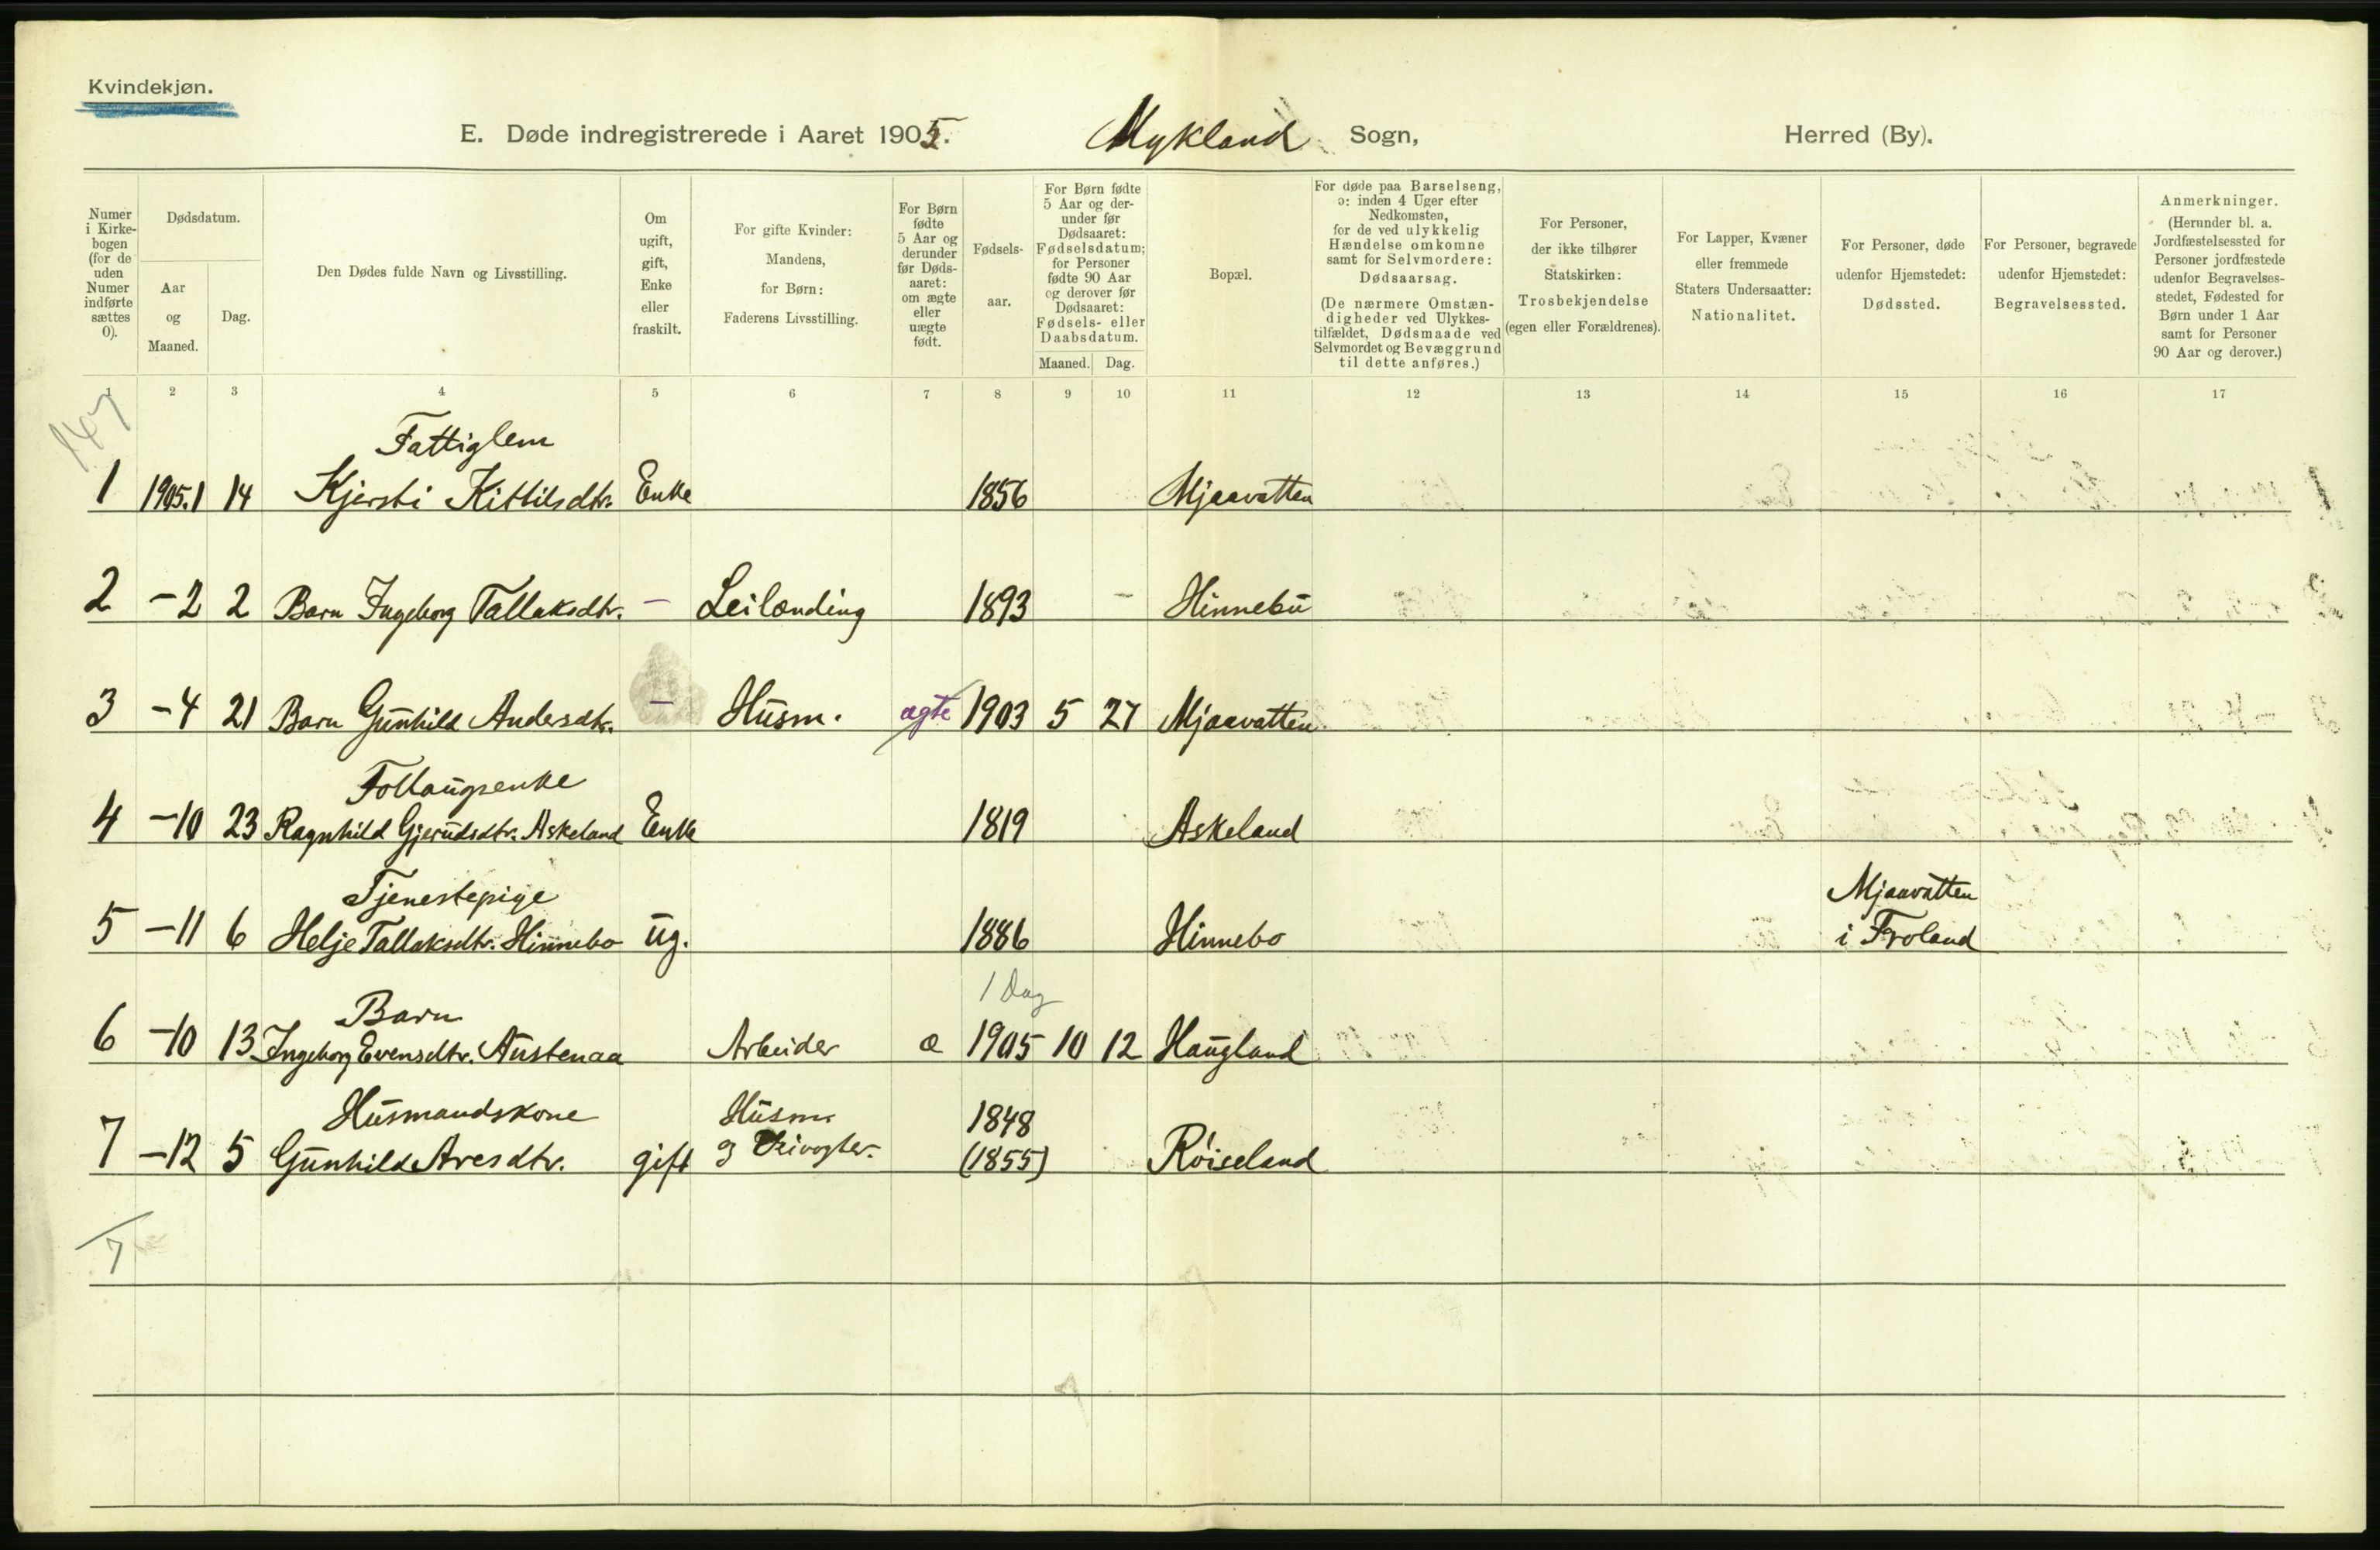 Kvindekjøn.
E. Døde indregistrerede i Aaret 1905. Mykland Sogn, Herred (By).
Numer i Kirkebogen (for de uden Numer indførte sættes 0).
Dødsdatum.
Aar og Maaned.
Dag.
Den Dødes fulde Navn og Livsstilling.
Om ugift, gift, Enke eller fraskilt.
For gifte Kvinder: Mandens, for Børn: Faderens Livsstilling.
For Børn fødte 5 Aar og derunder før Dødsaaret: om ægte eller uægte født.
Fødselsaar.
For Børn fødte 5 Aar og derunder før Dødsaaret: Fødselsdatum; for Personer fødte 90 Aar og derover før Dødsaaret: Fødsels- eller Daabsdatum.
Maaned. Dag.
Bopæl.
For døde paa Barselseng, ɔ: inden 4 Uger efter Nedkomsten, for de ved ulykkelig Hændelse omkomne samt for Selvmordere: Dødsaarsag.
(De nærmere Omstændigheder ved Ulykkestilfældet, Dødsmaade ved Selvmordet og Bevæggrund til dette anføres.)
For Personer, der ikke tilhører Statskirken: Trosbekjendelse (egen eller Forældrenes).
For Lapper, Kvæner eller fremmede Staters Undersaatter: Nationalitet.
For Personer, døde udenfor Hjemstedet: Dødssted.
For Personer, begravede udenfor Hjemstedet: Begravelsessted.
Anmerkninger.
(Herunder bl. a. Jordfæstelsessted for Personer jordfæstede udenfor Begravelsesstedet, Fødested for Børn under 1 Aar samt for Personer 90 Aar og derover.)
1 2 3 4 5 6 7 8 9 10 11 12 13 14 15 16 17
147
Fattiglem
1 1905.1 14 Kjersti Kittilsdtr. Enke 1856 Mjaavatten
2 -2 2 Barn Ingeborg Tallaksdtr. - Leilænding 1893 - Hinnebu
3 -4 21 Barn Gunhild Andersdtr. - Husm. ægte 1903 5 27 Mjaavatten
Follaugsenke
4 -10 23 Ragnhild Gjerudsdtr. Askeland Enke 1819 Askeland
Tjenestepige Mjaavatten
5 -11 6 Helje Tallaksdtr. Hinnebo ug. 1886 Hinnebo i Froland
1 Dag
Barn
6 -10 13 Ingeborg Evensdtr. Austenaa Arbeider æ 1905 10 12 Haugland
Husmandskone Husm. 1848
7 -12 5 Gunhild Aresdtr. gift og (1855) Röiseland
7